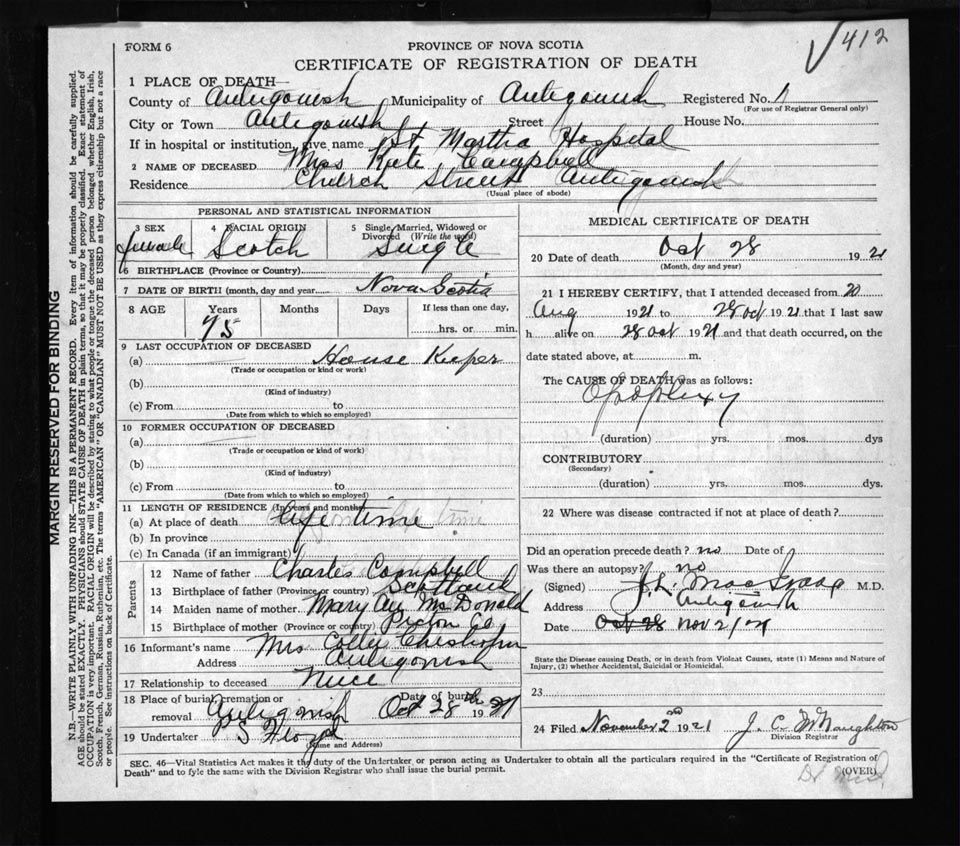 412
FORM 6
PROVINCE OF NOVA SCOTIA
CERTIFICATE OF REGISTRATION OF DEATH
1 PLACE OF DEATH—
County of Antigonish Municipality of Antigonish Registered No. 1
(For use of Registrar General only)
City or Town Antigonish Street House No.
If in hospital or institution, give name St Martha Hospital
2 NAME OF DECEASED Miss Kate Campbell
Residence Church Street Antigonish
(Usual place of abode)
PERSONAL AND STATISTICAL INFORMATION
3 SEX 4 RACIAL ORIGIN 5 Single, Married, Widowed or Divorced (Write the word)
female Scotch Single
6 BIRTHPLACE (Province or Country)
7 DATE OF BIRTH (month, day and year) Nova Scotia
8 AGE Years Months Days If less than one day,
75 hrs. or min.
9 LAST OCCUPATION OF DECEASED
(a) House Keeper
(Trade or occupation or kind or work)
(b)
(Kind of industry)
(c) From to
(Date from which to which so employed)
10 FORMER OCCUPATION OF DECEASED
(a)
(Trade or occupation or kind of work)
(b)
(Kind of industry)
(c) From to
(Date from which to which so employed)
11 LENGTH OF RESIDENCE (In years and months)
(a) At place of death life time
(b) In province
(c) In Canada (if an immigrant)
Parents
12 Name of father Charles Campbell
13 Birthplace of father (Province or country) Scotland
14 Maiden name of mother Mary Ann McDonald
15 Birthplace of mother (Province or country) Pictou Co
16 Informant's name Mrs Colly Chisholm
Address Antigonish
17 Relationship to deceased Niece
18 Place of burial, cremation or removal Antigonish Date of burial Oct 28th 1921
19 Undertaker P S Floyd
(Name and Address)
MEDICAL CERTIFICATE OF DEATH
20 Date of death Oct 28 1921
(Month, day and year)
21 I HEREBY CERTIFY, that I attended deceased from 20
Aug 1921 to 28 oct 1921 that I last saw
h alive on 28 oct 1921 and that death occurred, on the
date stated above, at m.
The CAUSE OF DEATH was as follows:
Apoplexy
(duration) yrs. mos. dys
CONTRIBUTORY
(Secondary)
(duration) yrs. mos. dys.
22 Where was disease contracted if not at place of death?
Did an operation precede death? no Date of
Was there an autopsy? no
(Signed) M.D.
Address Antigonish
Date Oct 28 Nov 2/21
State the Disease causing Death, or in death from Violent Causes, state (1) Means and Nature of
Injury, (2) whether Accidental, Suicidal or Homicidal.
23
24 Filed November 2nd 1921 J. C. McNaughton
Division Registrar
SEC. 46—Vital Statistics Act makes it the duty of the Undertaker or person acting as Undertaker to obtain all the particulars required in the "Certificate of Registration of
Death" and to fyle the same with the Division Registrar who shall issue the burial permit.
(OVER)
MARGIN RESERVED FOR BINDING
N.B.—WRITE PLAINLY WITH UNFADING INK—THIS IS A PERMANENT RECORD. Every item of information should be carefully supplied.
AGE should be stated EXACTLY. PHYSICIANS should STATE CAUSE OF DEATH in plain terms, so that it may be properly classified. Exact statement of
OCCUPATION is very important. RACIAL ORIGIN will be described by stating to what people or tongue the deceased person belonged whether English, Irish,
Scotch, French, German, Russian, Ruthenian, etc. The terms "AMERICAN" OR "CANADIAN" MUST NOT BE USED as they express citizenship but not a race
or people. See instructions on back of Certificate.